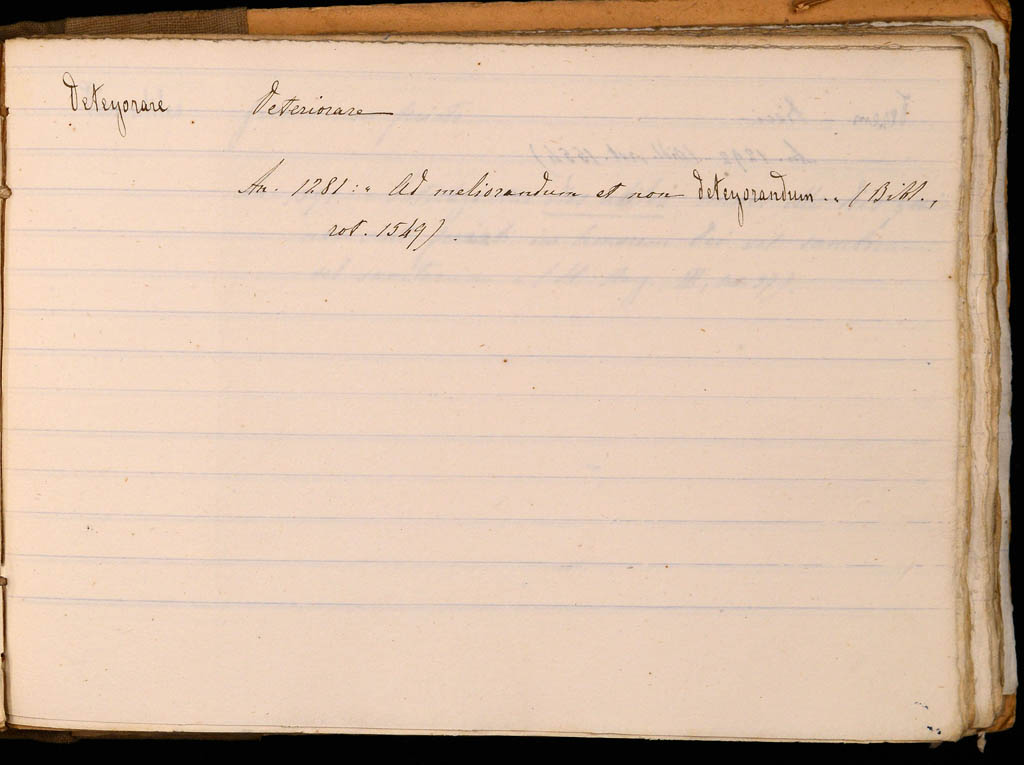 Deteyorare Deteriorare
An. 1281: « Ad meliorandum et non deteyorandum. » (Bibl.,
rot. 1549).